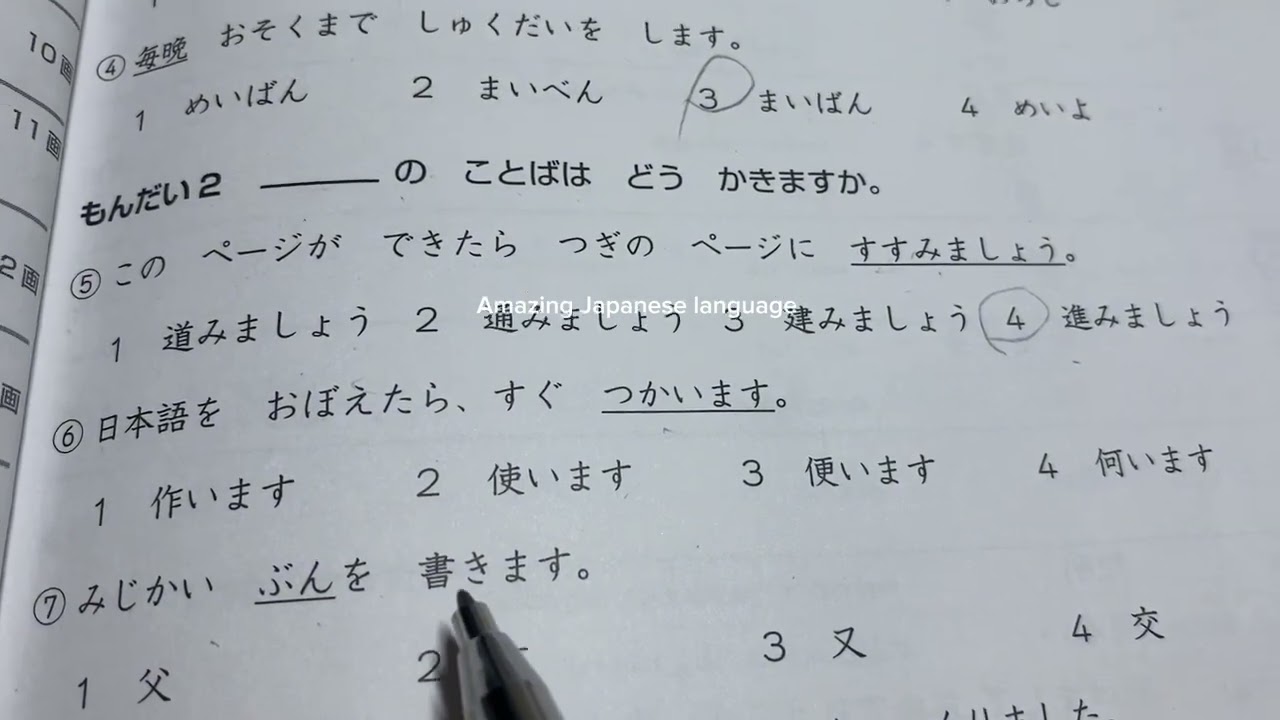 10画
④ 毎晩 おそくまで しゅくだいを します。
11画
1 めいばん 2 まいべん 3 まいばん 4 めいよ
もんだい2 ＿＿＿の ことばは どう かきますか。
2画
⑤ この ページが できたら つぎの ページに すすみましょう。
Amazing Japanese language
1 道みましょう 2 通みましょう 3 建みましょう 4 進みましょう
画
⑥ 日本語を おぼえたら、すぐ つかいます。
1 作います 2 使います 3 便います 4 何います
⑦ みじかい ぶんを 書きます。
1 父 2 3 又 4 交
ました。